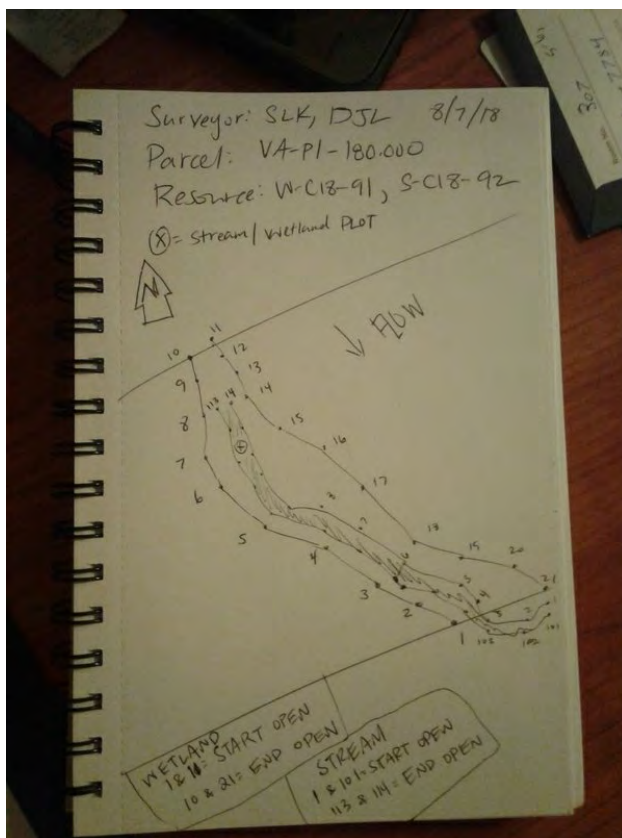 Surveyor: SLK, DJL 8/7/18
Parcel: VA-PI-180.000
Resource: W-C18-91, S-C18-92
(X) = Stream/Wetland PLOT
N
↓ FLOW
11
10 12
9 13
113 14 14
8 15
7 16
6 17
8
5 7 18
4 6 19 20
3 5 21
2 4 1
1 3 2 101
103 102
WETLAND
1 & 11 = START OPEN
10 & 21 = END OPEN
STREAM
1 & 101 = START OPEN
113 & 114 = END OPEN